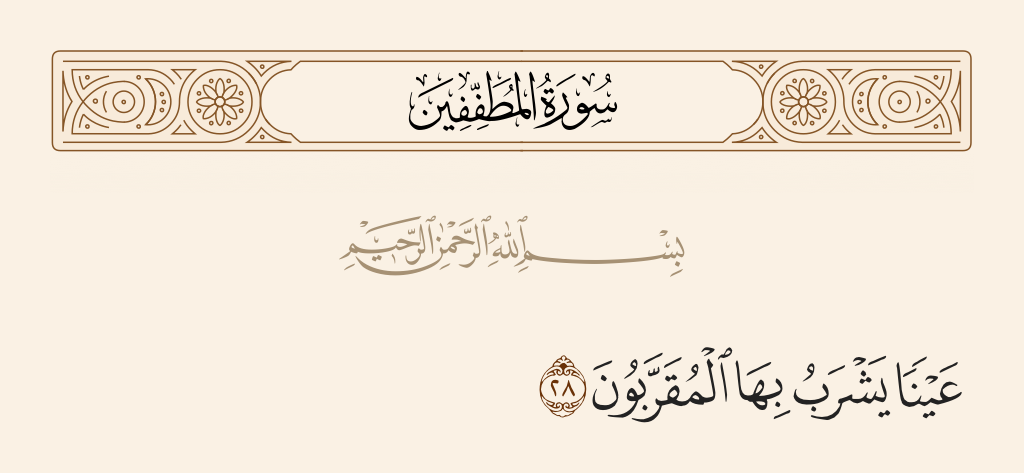 سُورَةُ المُطَفِّفِينَ
بِسْمِ ٱللَّهِ ٱلرَّحْمَٰنِ ٱلرَّحِيمِ
عَيْنًا يَشْرَبُ بِهَا ٱلْمُقَرَّبُونَ ٢٨